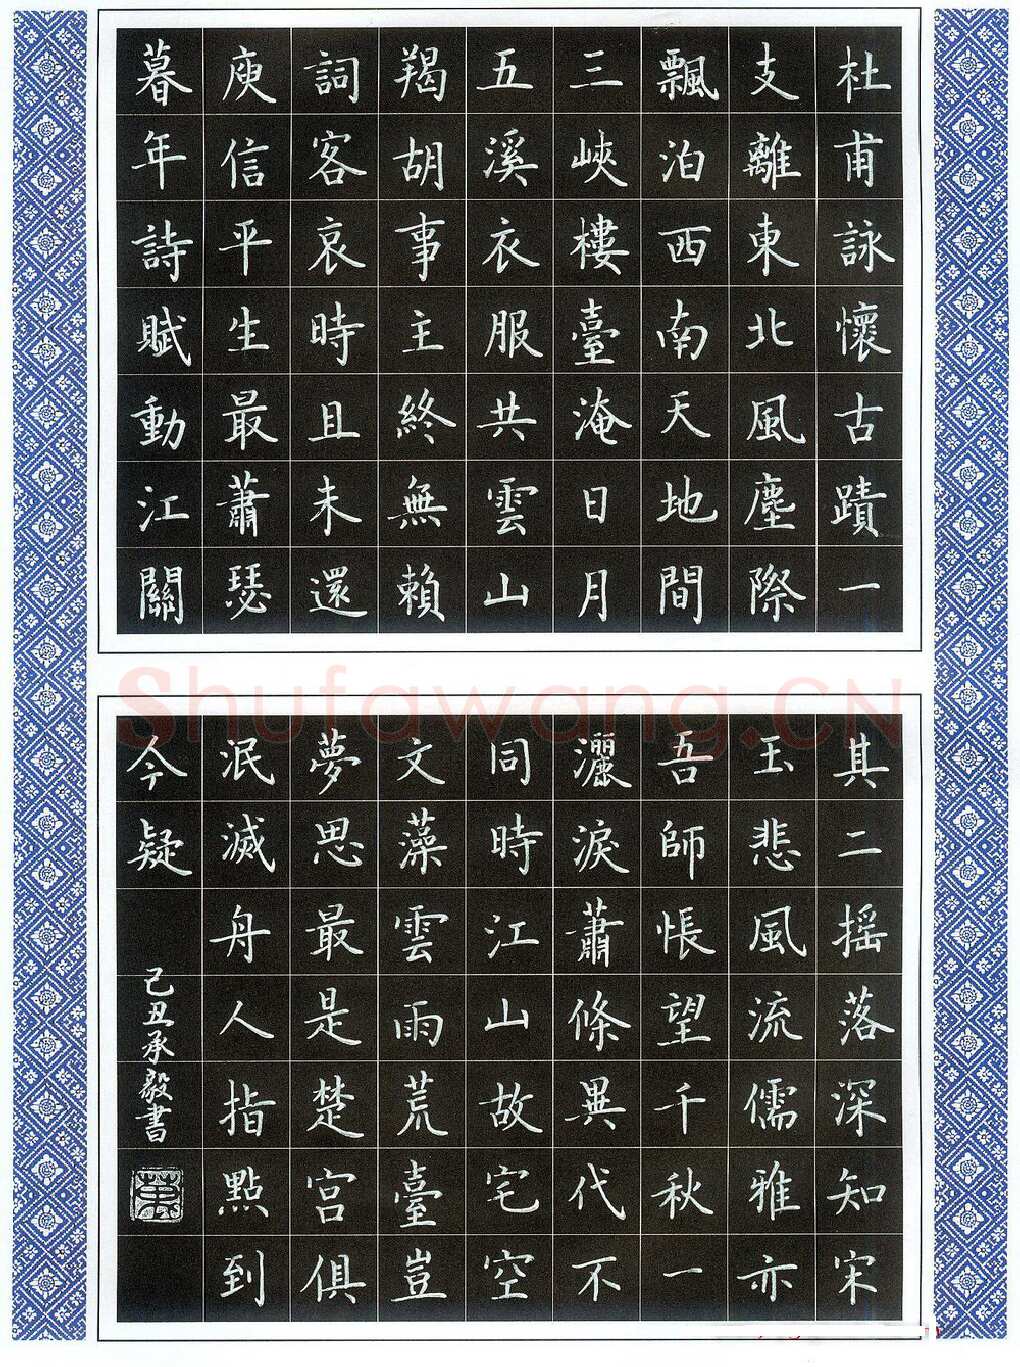 杜甫詠懷古蹟一
支離東北風塵際
飄泊西南天地間
三峽樓臺淹日月
五溪衣服共雲山
羯胡事主終無賴
詞客哀時且未還
庾信平生最蕭瑟
暮年詩賦動江關
Shufawang.CN
其二摇落深知宋
玉悲風流儒雅亦
吾師悵望千秋一
灑淚蕭條異代不
同時江山故宅空
文藻雲雨荒臺豈
夢思最是楚宮俱
泯滅舟人指點到
今疑
己丑承毅書